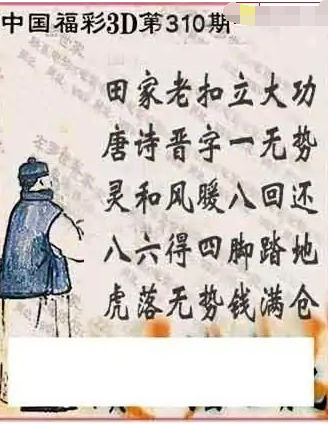 中国福彩3D第310期
田家老扣立大功
唐诗晋字一无势
灵和风暖八回还
八六得四脚踏地
虎落无势钱满仓